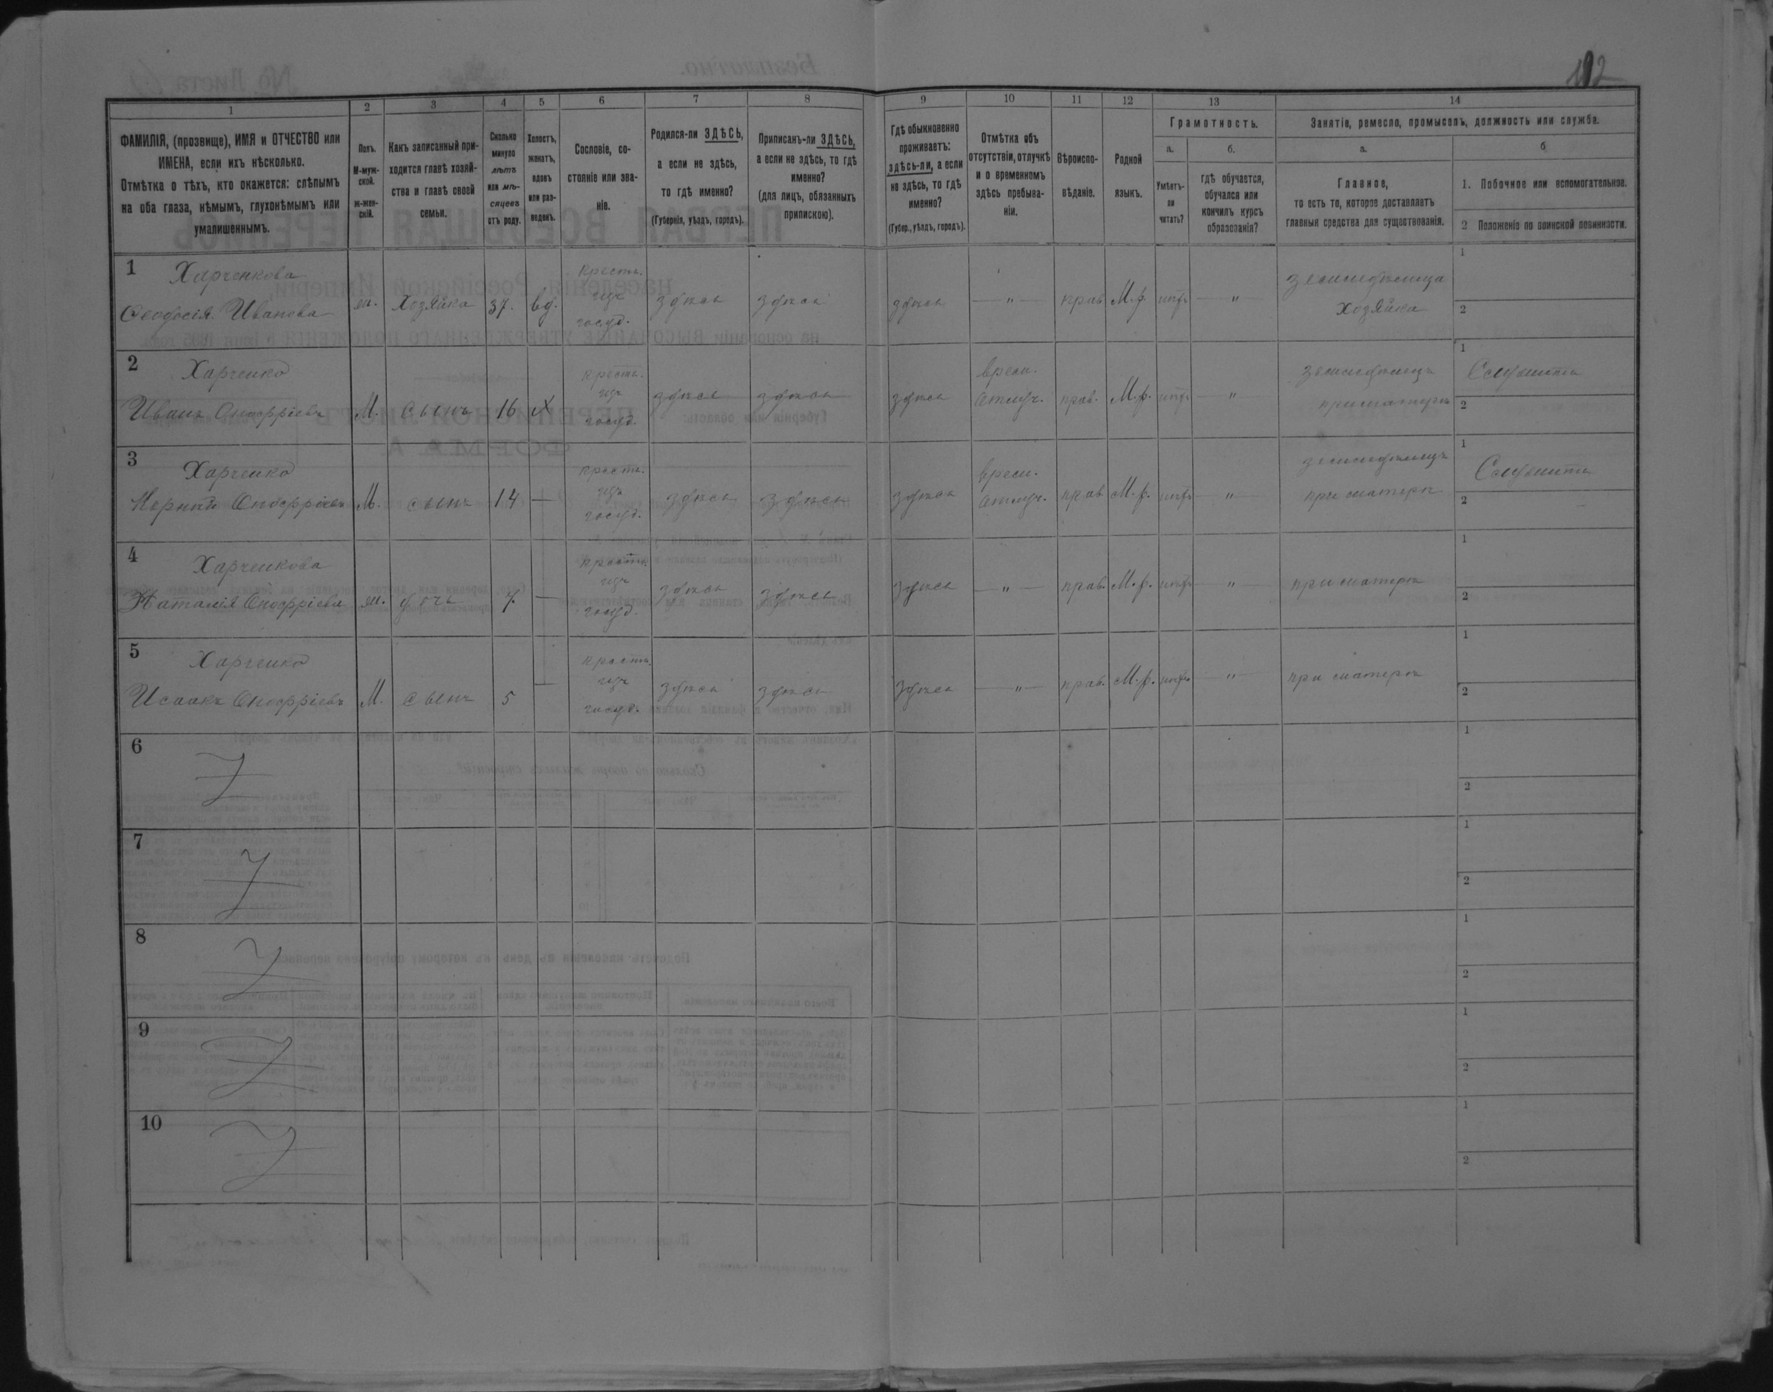 192
1 2 3 4 5 6 7 8 9 10 11 12 13 14
ФАМИЛІЯ, (прозвище), ИМЯ и ОТЧЕСТВО или
ИМЕНА, если ихъ нѣсколько.
Отмѣтка о тѣхъ, кто окажется: слѣпымъ
на оба глаза, нѣмымъ, глухонѣмымъ или
умалишеннымъ.
Полъ.
М-муж-
ской.
ж-жен-
скій.
Какъ записанный при-
ходится главѣ хозяй-
ства и главѣ своей
семьи.
Сколько
минуло
лѣтъ
или мѣ-
сяцевъ
отъ роду.
Холостъ,
женатъ,
вдовъ
или раз-
веденъ.
Сословіе, со-
стояніе или зва-
ніе.
Родился-ли ЗДѢСЬ,
а если не здѣсь,
то гдѣ именно?
(Губернія, уѣздъ, городъ).
Приписанъ-ли ЗДѢСЬ,
а если не здѣсь, то гдѣ
именно?
(для лицъ, обязанныхъ
припискою).
Гдѣ обыкновенно
проживаетъ:
здѣсь-ли, а если
не здѣсь, то гдѣ
именно?
(Губер., уѣздъ, городъ).
Отмѣтка объ
отсутствіи, отлучкѣ
и о временномъ
здѣсь пребыва-
ніи.
Вѣроиспо-
вѣданіе.
Родной
языкъ.
Грамотность.
а.
Умѣетъ-
ли
читать?
б.
гдѣ обучается,
обучался или
кончилъ курсъ
образованія?
Занятіе, ремесло, промыселъ, должность или служба.
а.
Главное,
то есть то, которое доставляетъ
главныя средства для существованія.
б.
1. Побочное или вспомогательное.
2 Положеніе по воинской повинности.
1 Харченкова крестн. земледѣлица 1
Ѳеодосія Иванова ж. Хозяйка 37. вд. изъ здѣсь здѣсь здѣсь — " — прав. М. р. нѣт. — " Хозяйка 2
госуд.
2 Харченко крестн. врем. земледѣлецъ 1
Иванъ Онофріевъ М. сынъ 16 х изъ здѣсь здѣсь здѣсь отлуч. прав. М. р. нѣт. " при матери 2
госуд.
3 Харченко крестн. врем. земледѣлецъ 1
Онофріевъ М. сынъ 14 — изъ здѣсь здѣсь здѣсь отлуч. прав. М. р. нѣт. " при матери 2
госуд.
4 Харченкова крестн. 1
Наталія Онофріева ж. дочь 7. — изъ здѣсь здѣсь здѣсь — " — прав. М. р. нѣт. " при матери 2
госуд.
5 Харченко крестн. 1
Исаакъ Онофріевъ М. сынъ 5 — изъ здѣсь здѣсь здѣсь — " — прав. М. р. нѣт. — " при матери 2
госуд.
6 1
2
7 1
2
8 1
2
9 1
2
10 1
2